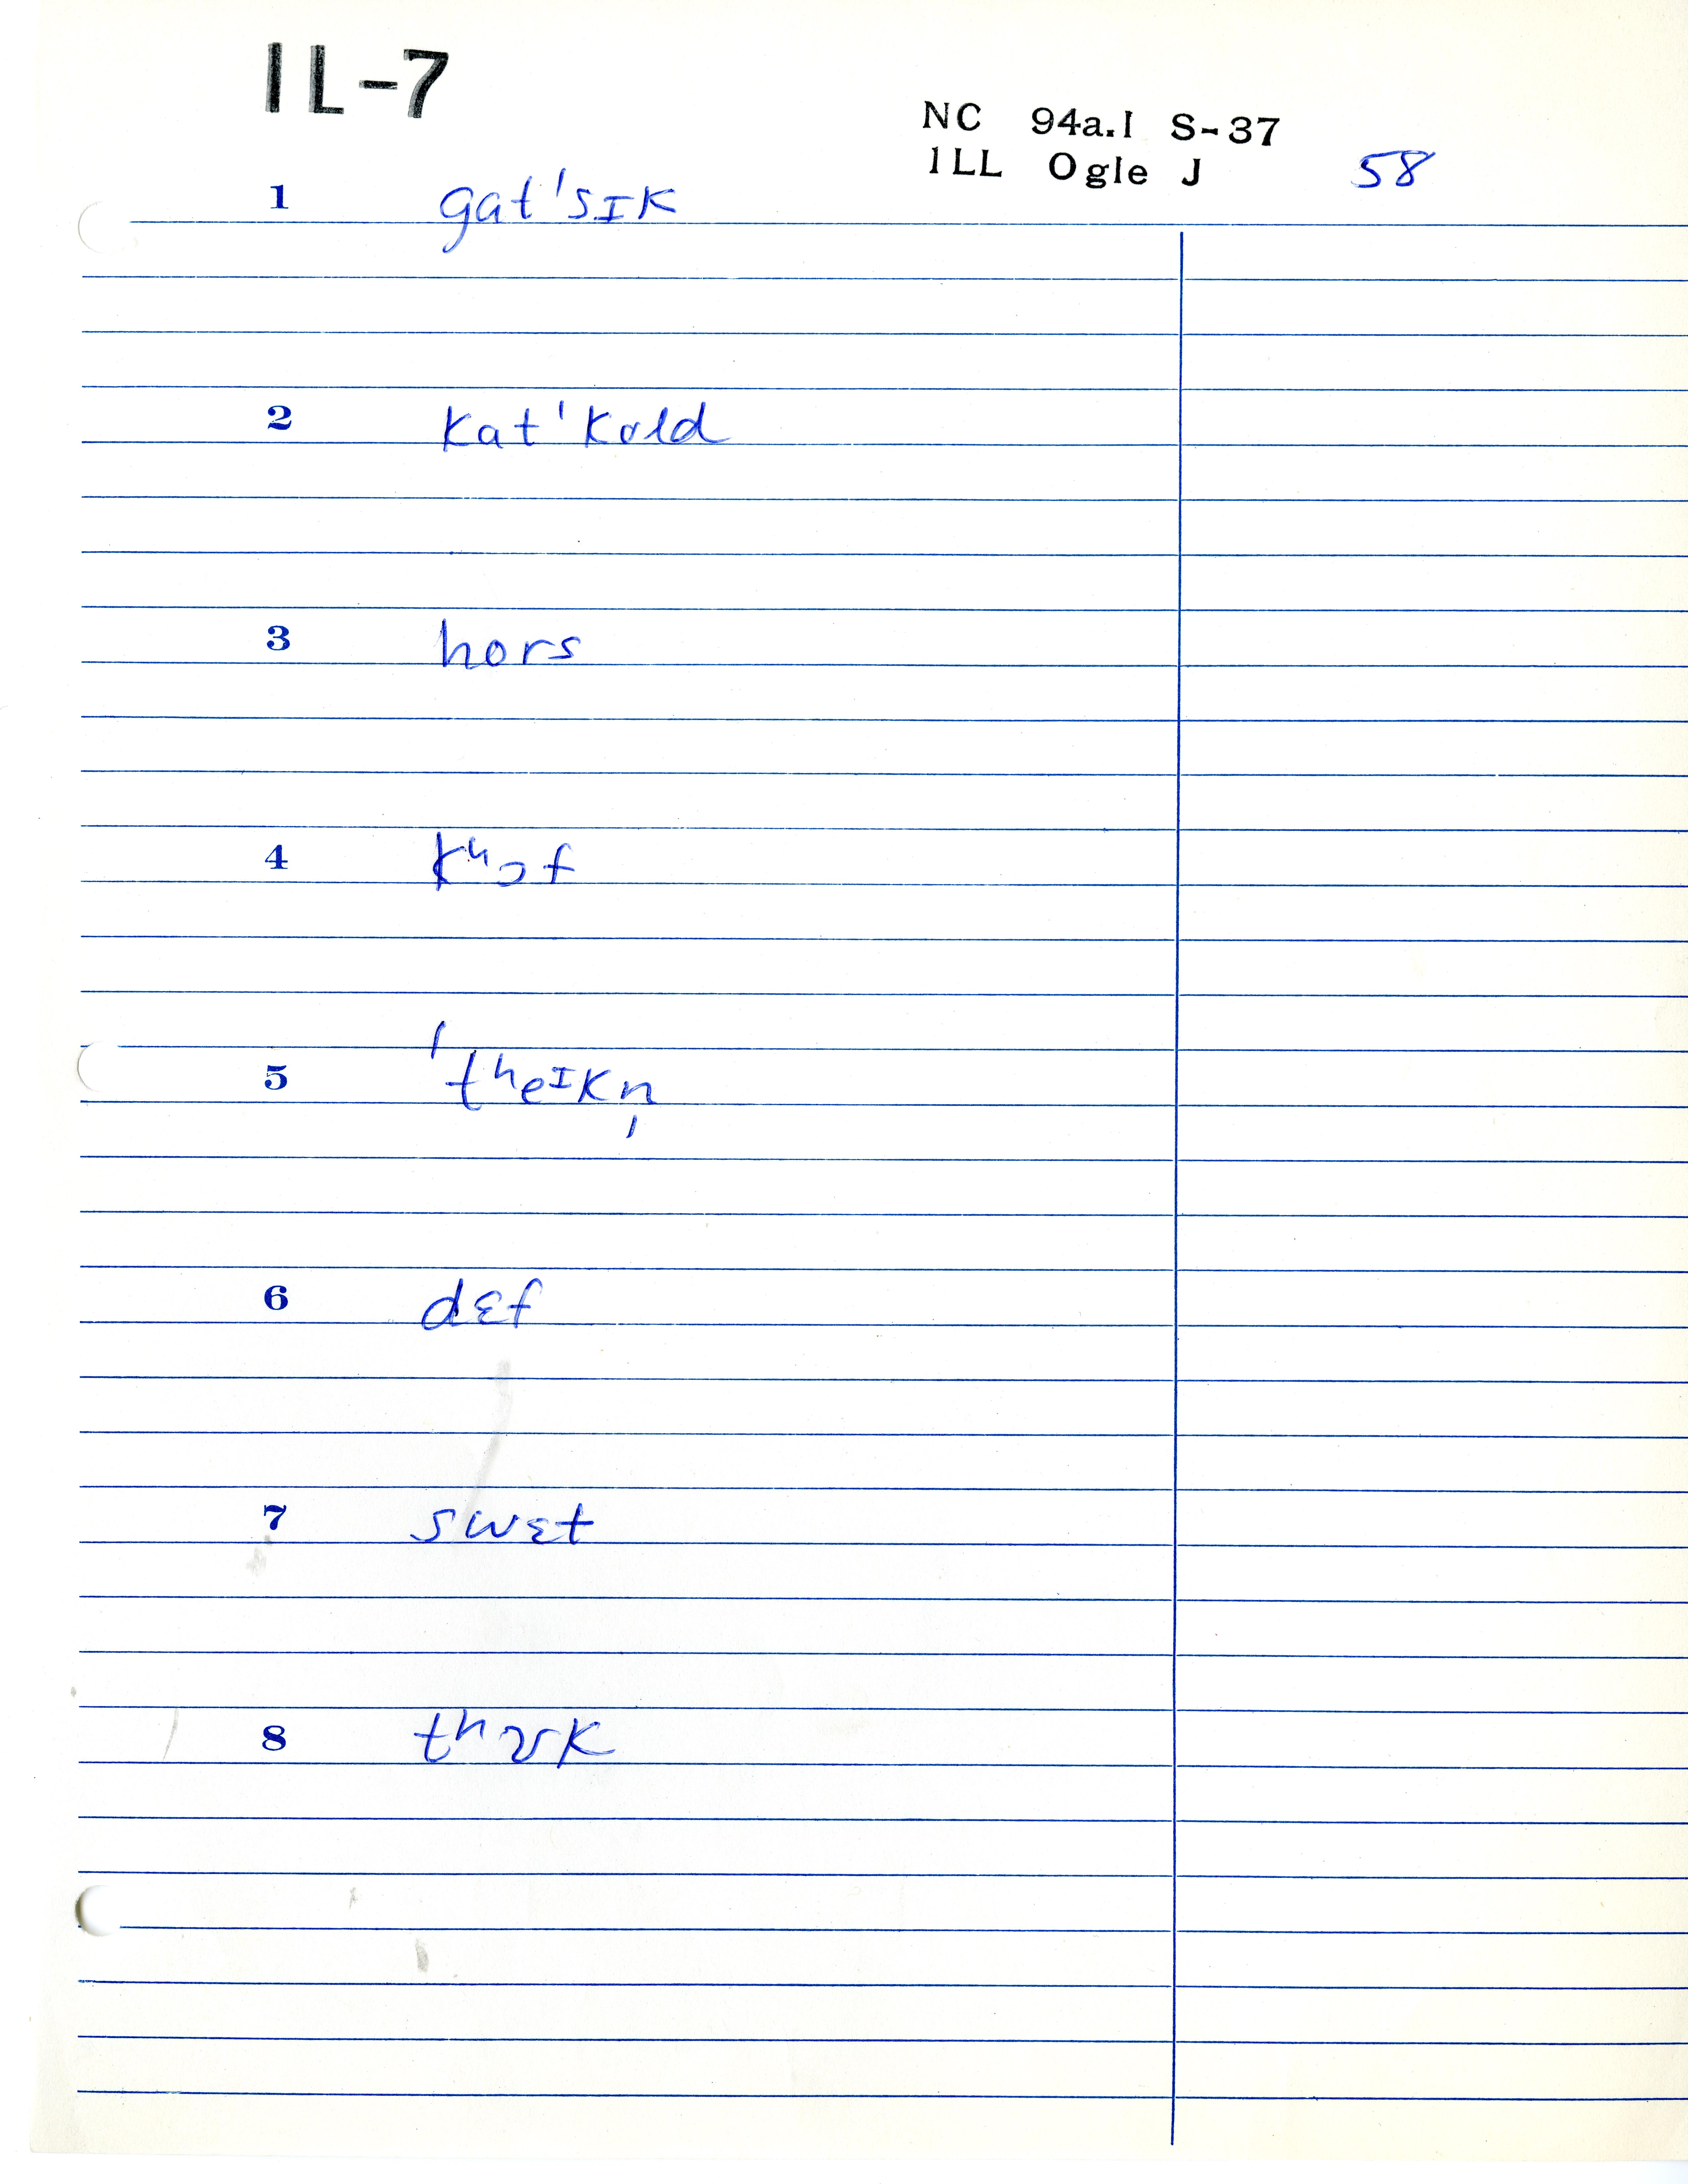 IL-7
NC 94a.1 S-37
ILL Ogle J 58
1 gatˈsɪk
2 katˈkold
3 hors
4 kʰɔf
5 ˈtʰeᶦkn̩
6 dɛf
7 swɛt
8 tʰʊk